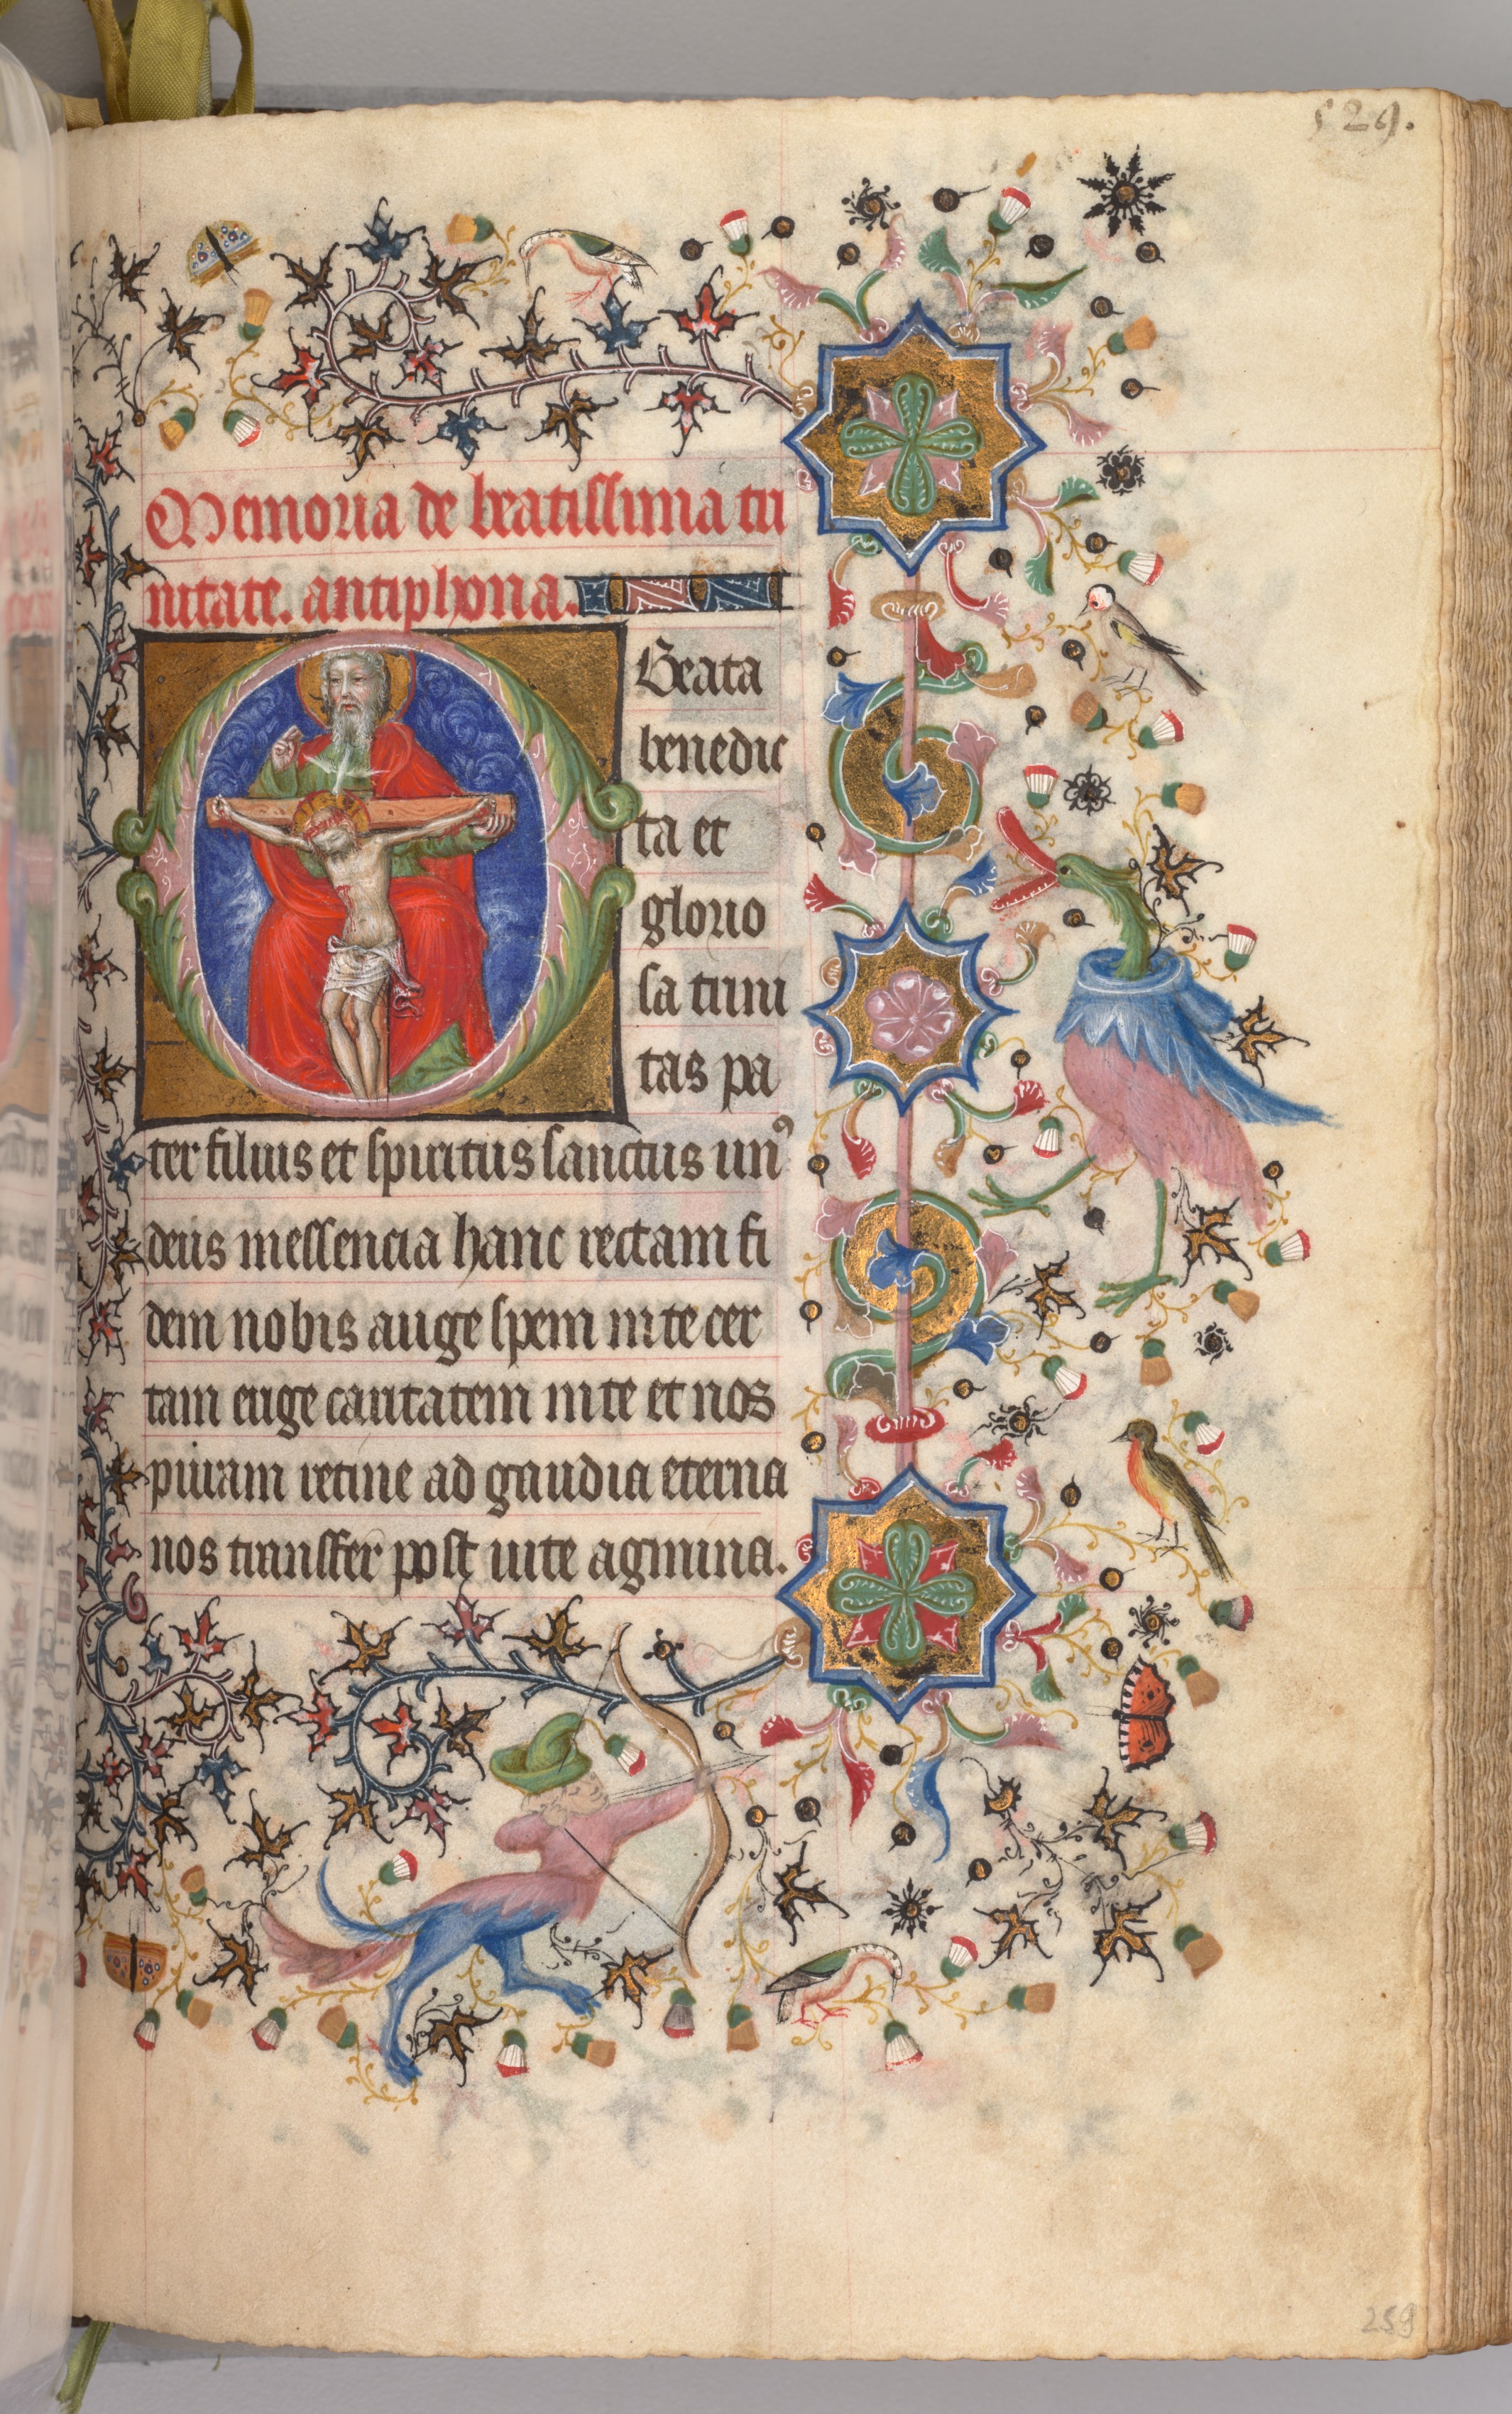 529.
Memoria de beatissima tri
nitate. antiphona.
O Beata
benedic
ta et
glorio
sa trini
tas pa
ter filius et spiritus sanctus unꝰ
deus messencia hanc rectam fi
dem nobis auge spem in te cer
tam euge caritatem in te et nos
puram retine ad gaudia eterna
nos transfer post uite agmina.
259